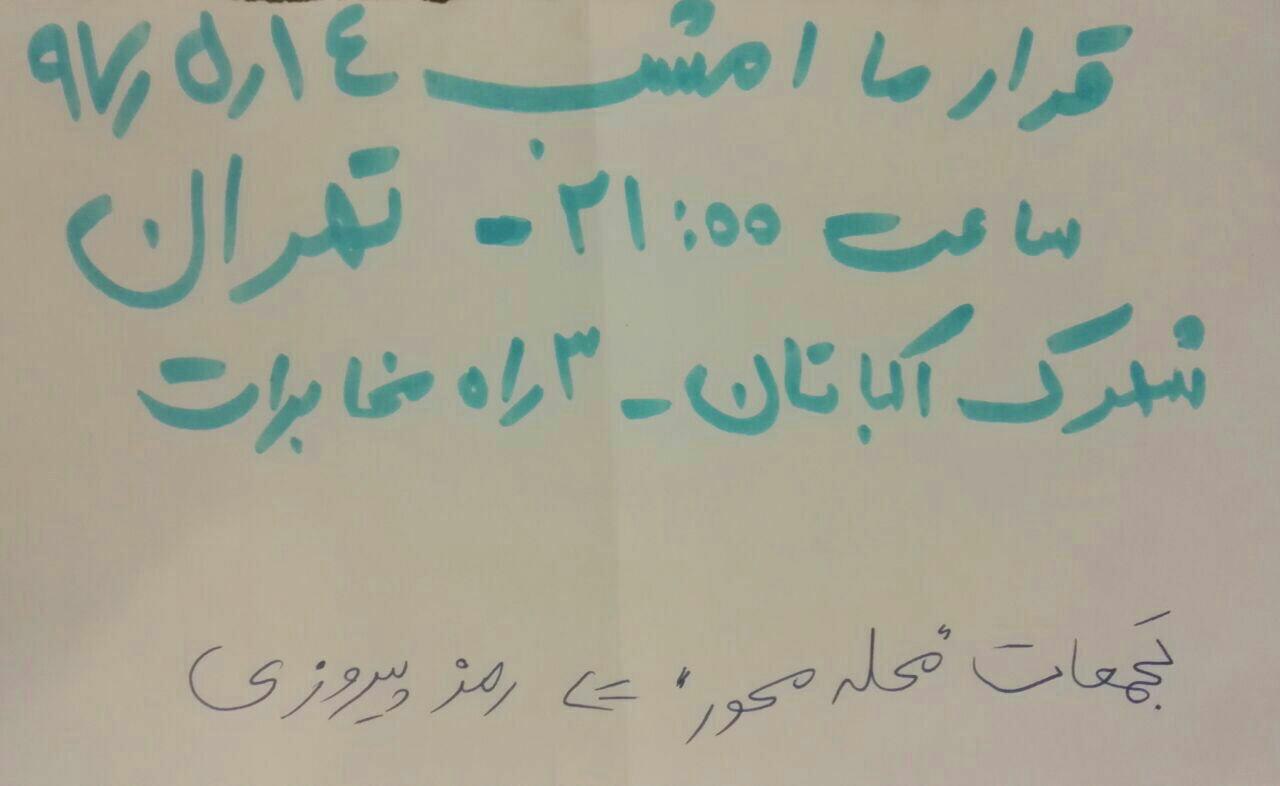 قرار ما امشب ۹۷٫۵٫۱٤
ساعت ۲۱:۰۰ - تهران
شهرک اکباتان - ۳ راه مخابرات
تجمعات "محله محور" <= رمز پیروزی